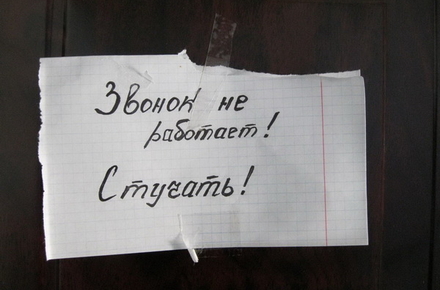 Звонок не
работает!
Стучать!